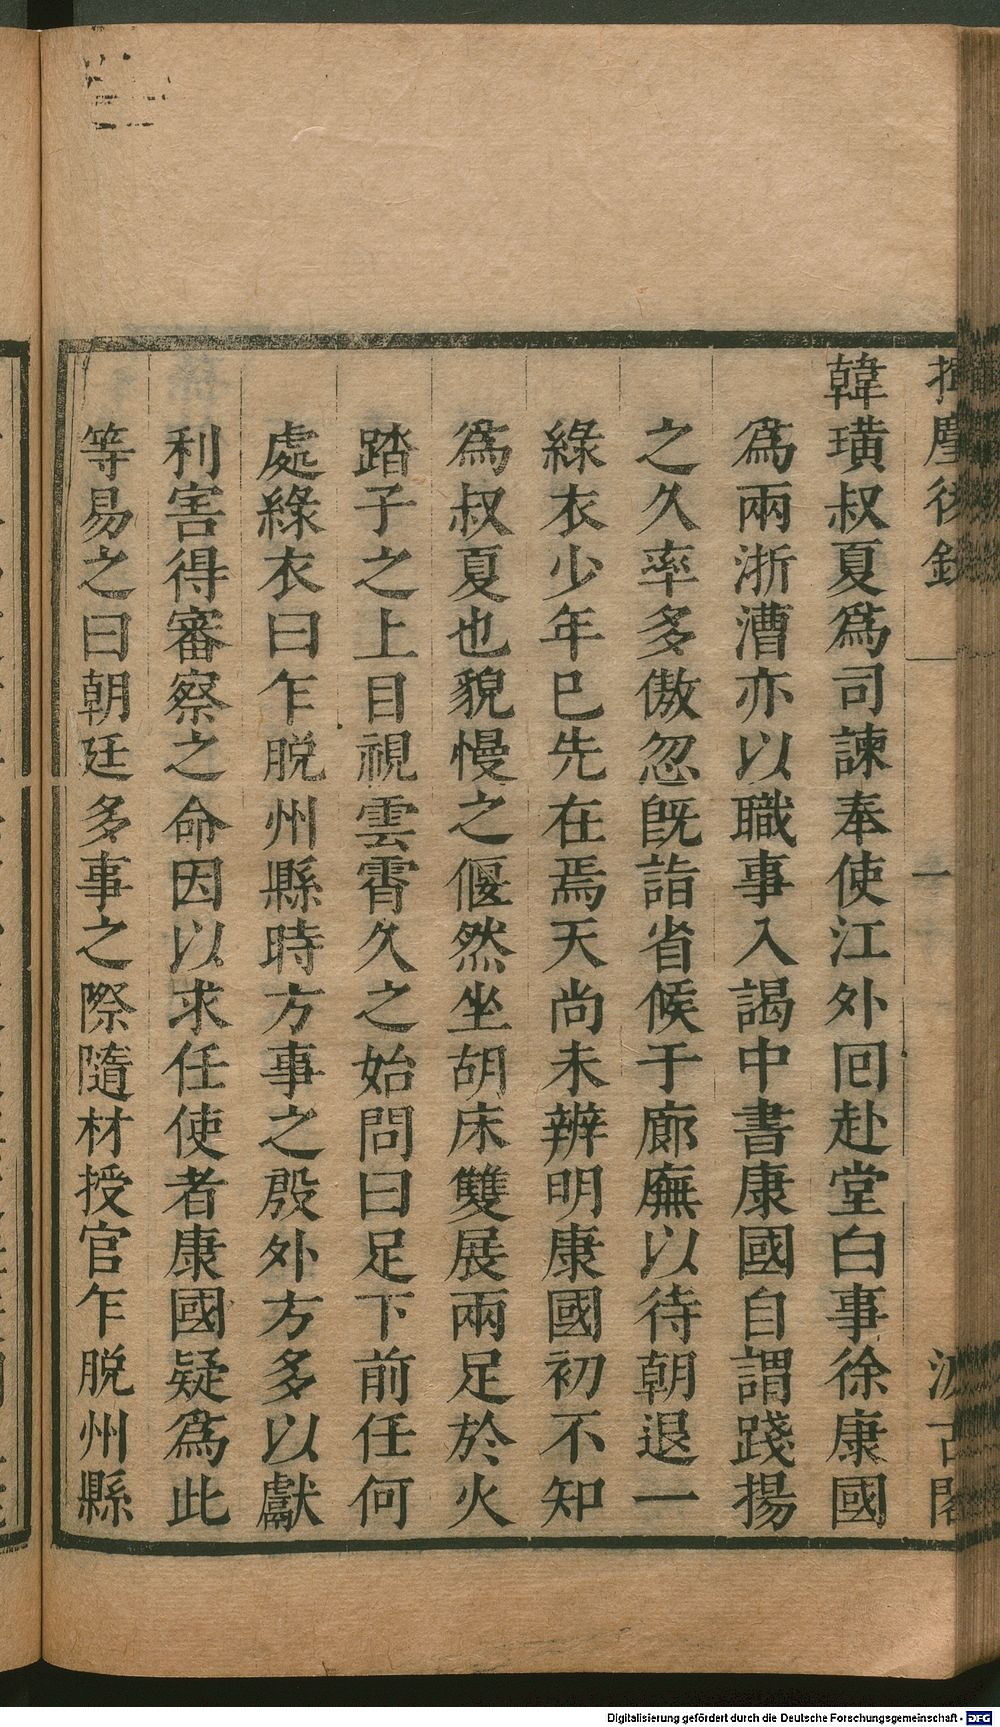 韓璜叔夏爲司諫奉使江外囘赴堂白事徐康國
爲兩浙漕亦以職事入謁中書康國自謂踐揚
之久率多傲忽旣詣省候于廊廡以待朝退一
綠衣少年巳先在焉天尚未辨明康國初不知
爲叔夏也貌慢之偃然坐胡床雙展兩足於火
踏子之上目視雲霄久之始問曰足下前任何
處綠衣曰乍脫州縣時方事之殷外方多以獻
利害得審察之命因以求任使者康國疑爲此
等易之曰朝廷多事之際隨材授官乍脫州縣
揮麈後錄
一
汲古閣
Digitalisierung gefördert durch die Deutsche Forschungsgemeinschaft - DFG